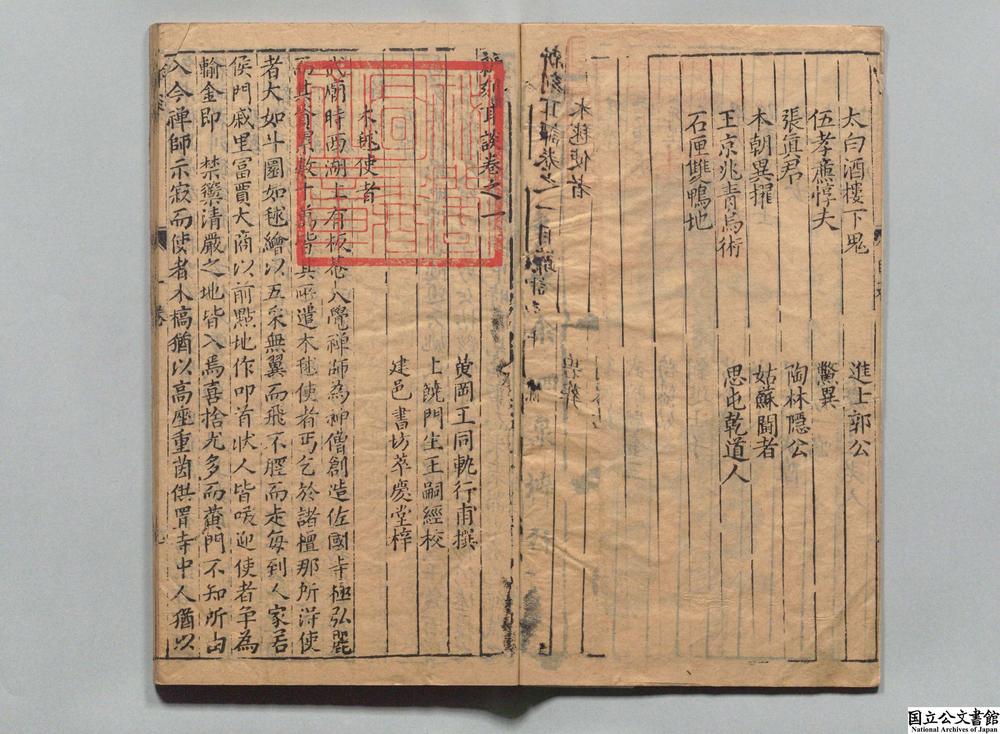 太白酒樓下鬼
進士郭公
伍孝廉惇夫
驚異
張眞君
陶林隱公
本朝異擢
姑蘇閽者
王京兆青烏術
思屯乾道人
石匣雙鴨地
木毬使者
新刻耳談卷之一
黄岡王同軌行甫撰
上饒門生王嗣經校
建邑書坊萃慶堂梓
木毬使者
武廟時西湖上有板菴大覺禅師為神僧創造佐國寺極弘麗
而其資費數十萬皆其所遣木毬使者丐乞於諸檀那所得使
者大如斗圓如毬繪以五采無翼而飛不脛而走每到人家若
侯門戚里冨賈大商以前點地作叩首状人皆嘆迎使者争為
輸金即禁籞清嚴之地皆入焉喜捨尤多而黄門不知所由
入今禅師示寂而使者木槁猶以高座重茵供置寺中人猶以
国立公文書館
National Archives of Japan